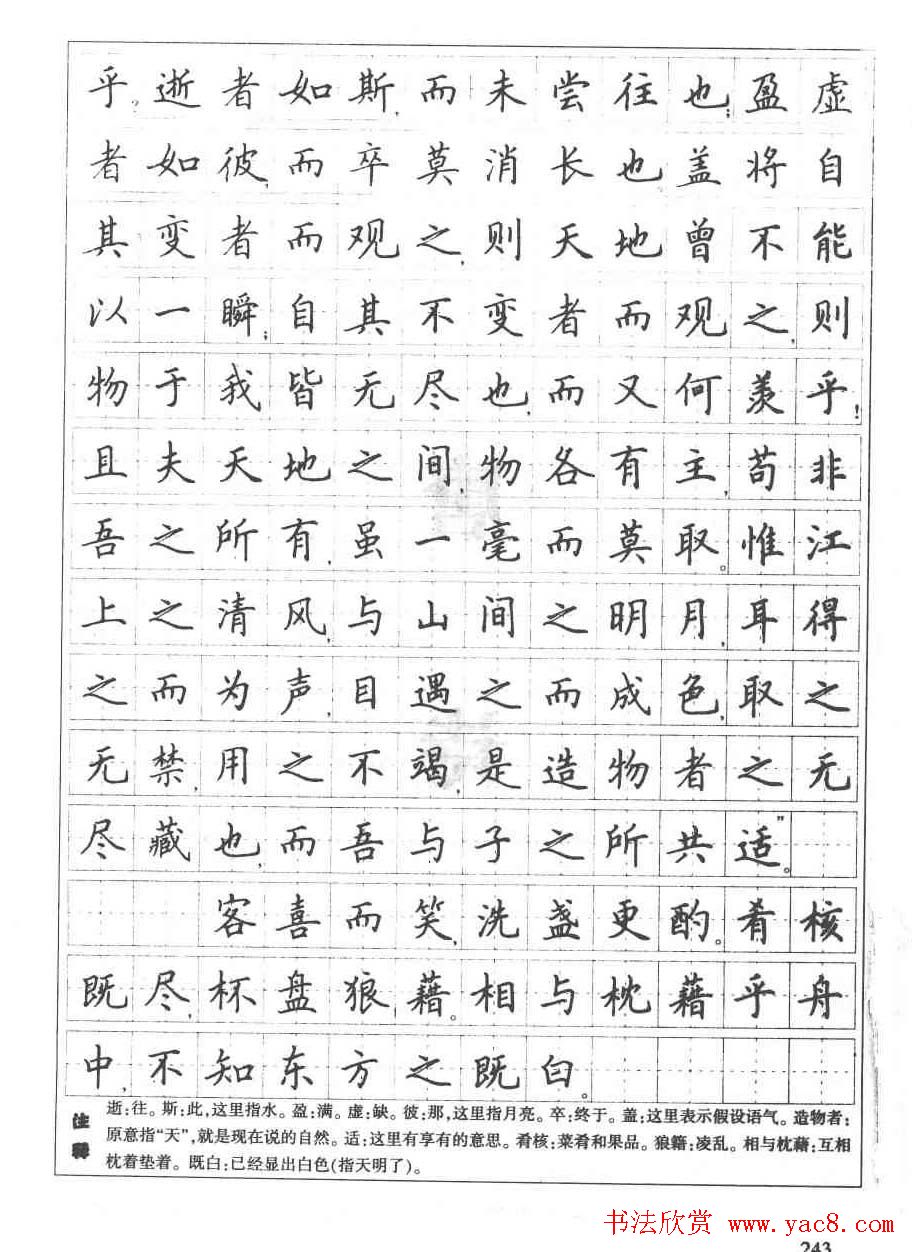 乎，逝者如斯，而未尝往也；盈虚
者如彼，而卒莫消长也，盖将自
其变者而观之，则天地曾不能
以一瞬；自其不变者而观之，则
物于我皆无尽也，而又何羡乎！
且夫天地之间，物各有主，苟非
吾之所有，虽一毫而莫取。惟江
上之清风，与山间之明月，耳得
之而为声，目遇之而成色，取之
无禁，用之不竭，是造物者之无
尽藏也，而吾与子之所共适。"
客喜而笑，洗盏更酌。肴核
既尽，杯盘狼藉。相与枕藉乎舟
中，不知东方之既白。
注释
逝:往。斯:此,这里指水。盈:满。虚:缺。彼:那,这里指月亮。卒:终于。盖:这里表示假设语气。造物者:
原意指“天”,就是现在说的自然。适:这里有享有的意思。肴核:菜肴和果品。狼籍:凌乱。相与枕藉:互相
枕着垫着。既白:已经显出白色(指天明了)。
书法欣赏 www.yac8.com
243